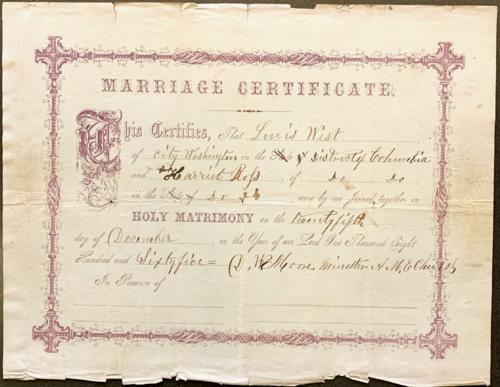 MARRIAGE CERTIFICATE.
This Certifies, That Luis West
of City Washington in the State of District of Columbia
and Harriet, of Do Do
in the State of Do, were by me Joined together in
HOLY MATRIMONY on the twentyfifth
day of December, in the Year of our Lord One Thousand Eight
Hundred and Sixtyfive = D. W. Moore. Minister A. M. E. Church
In Presence of